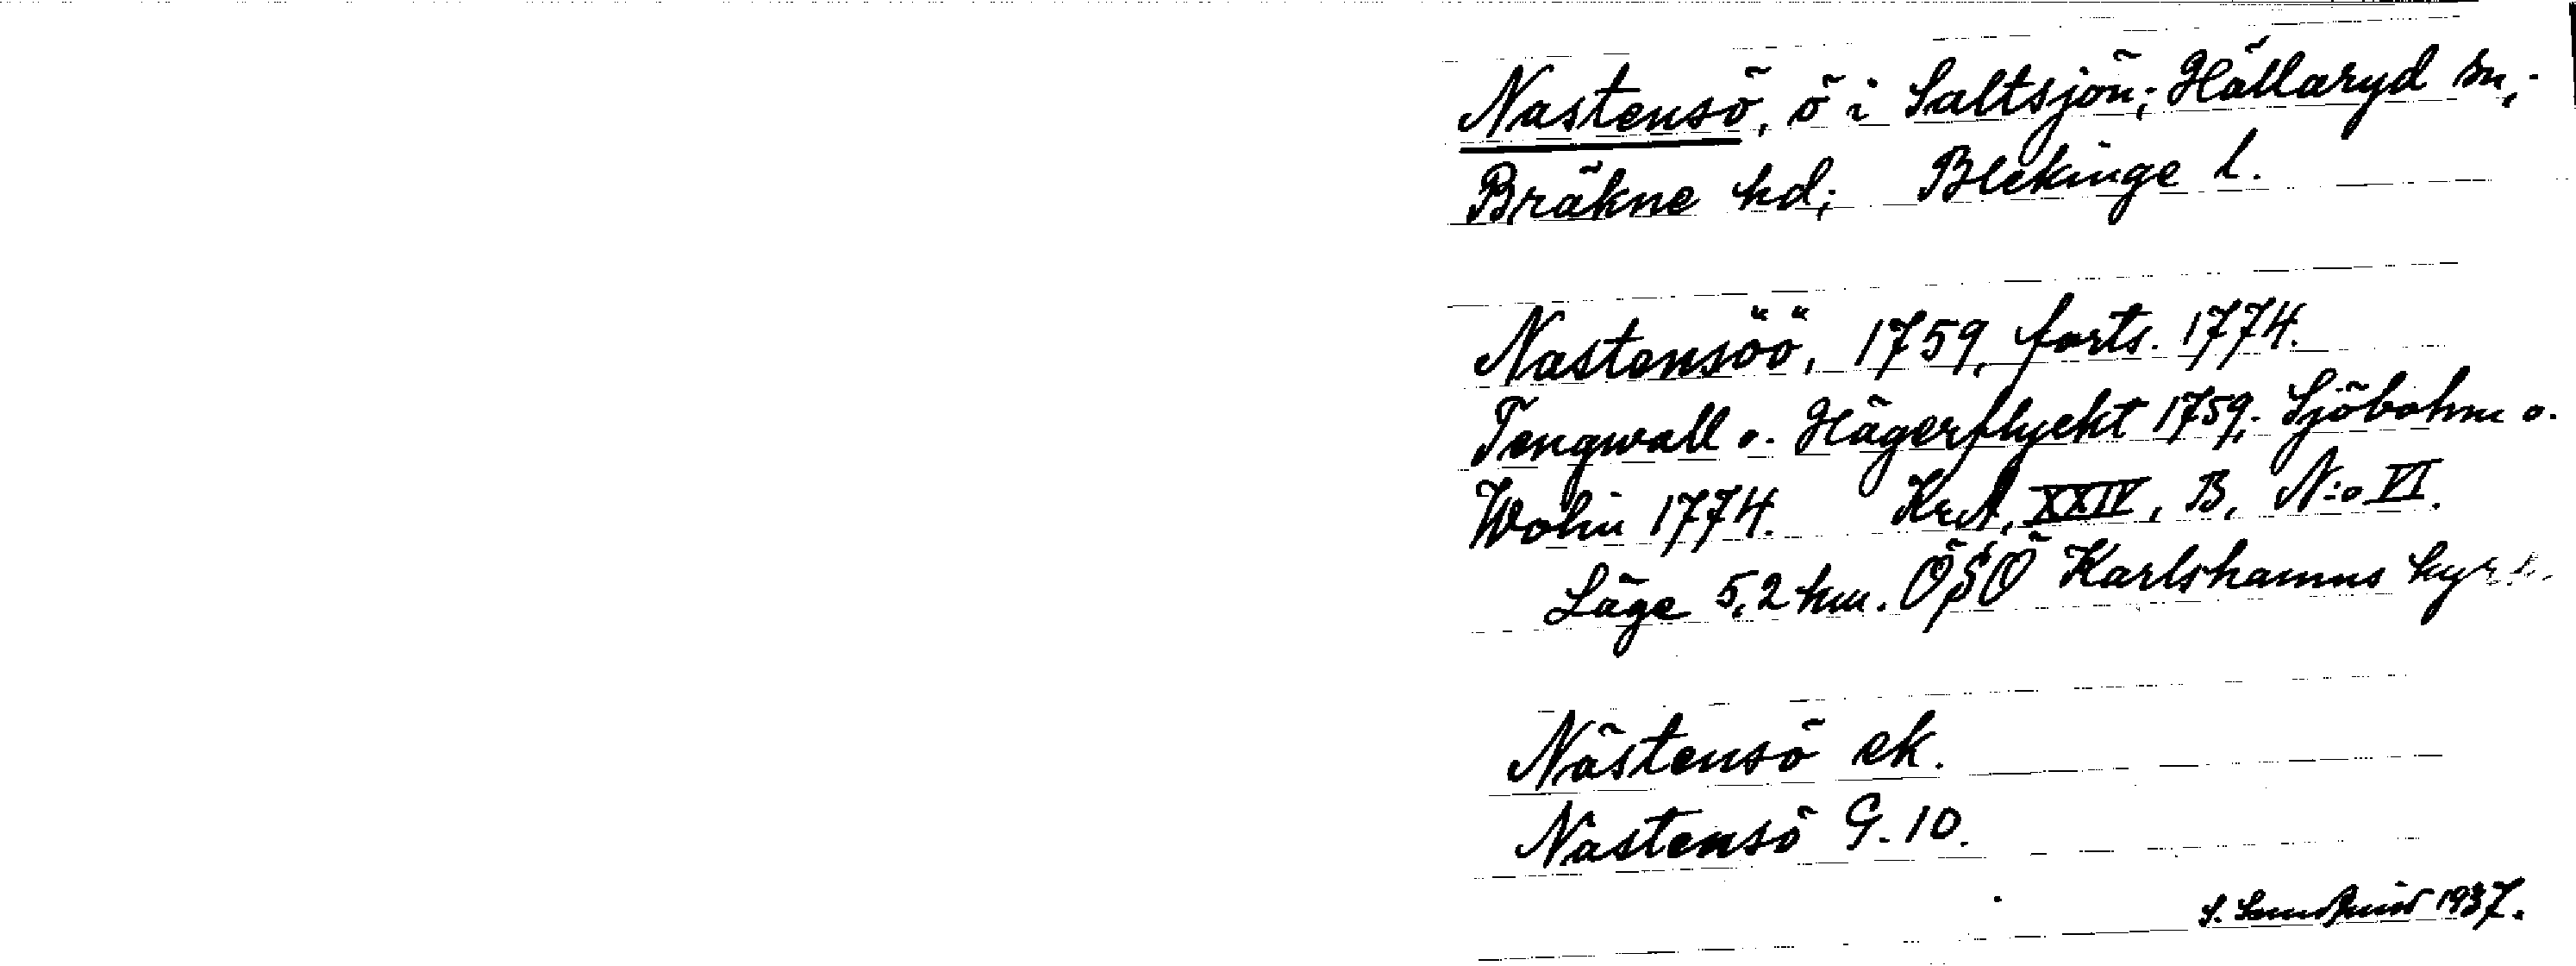 Nastensö, ö i Saltsjön; Hällaryd sn,
Bräkne hd; Blekinge l.
Nastensöö, 1759, forts. 1774.
Tengwall o. Hägerflyckt 1759; Sjöbohm o.
Wohin 1774. KrA, XXIV, B, N:o VI.
Läge 5,2 km. ÖSÖ Karlshamns
Nästensö ek.
Nastensö G. 10.
S. 1937.